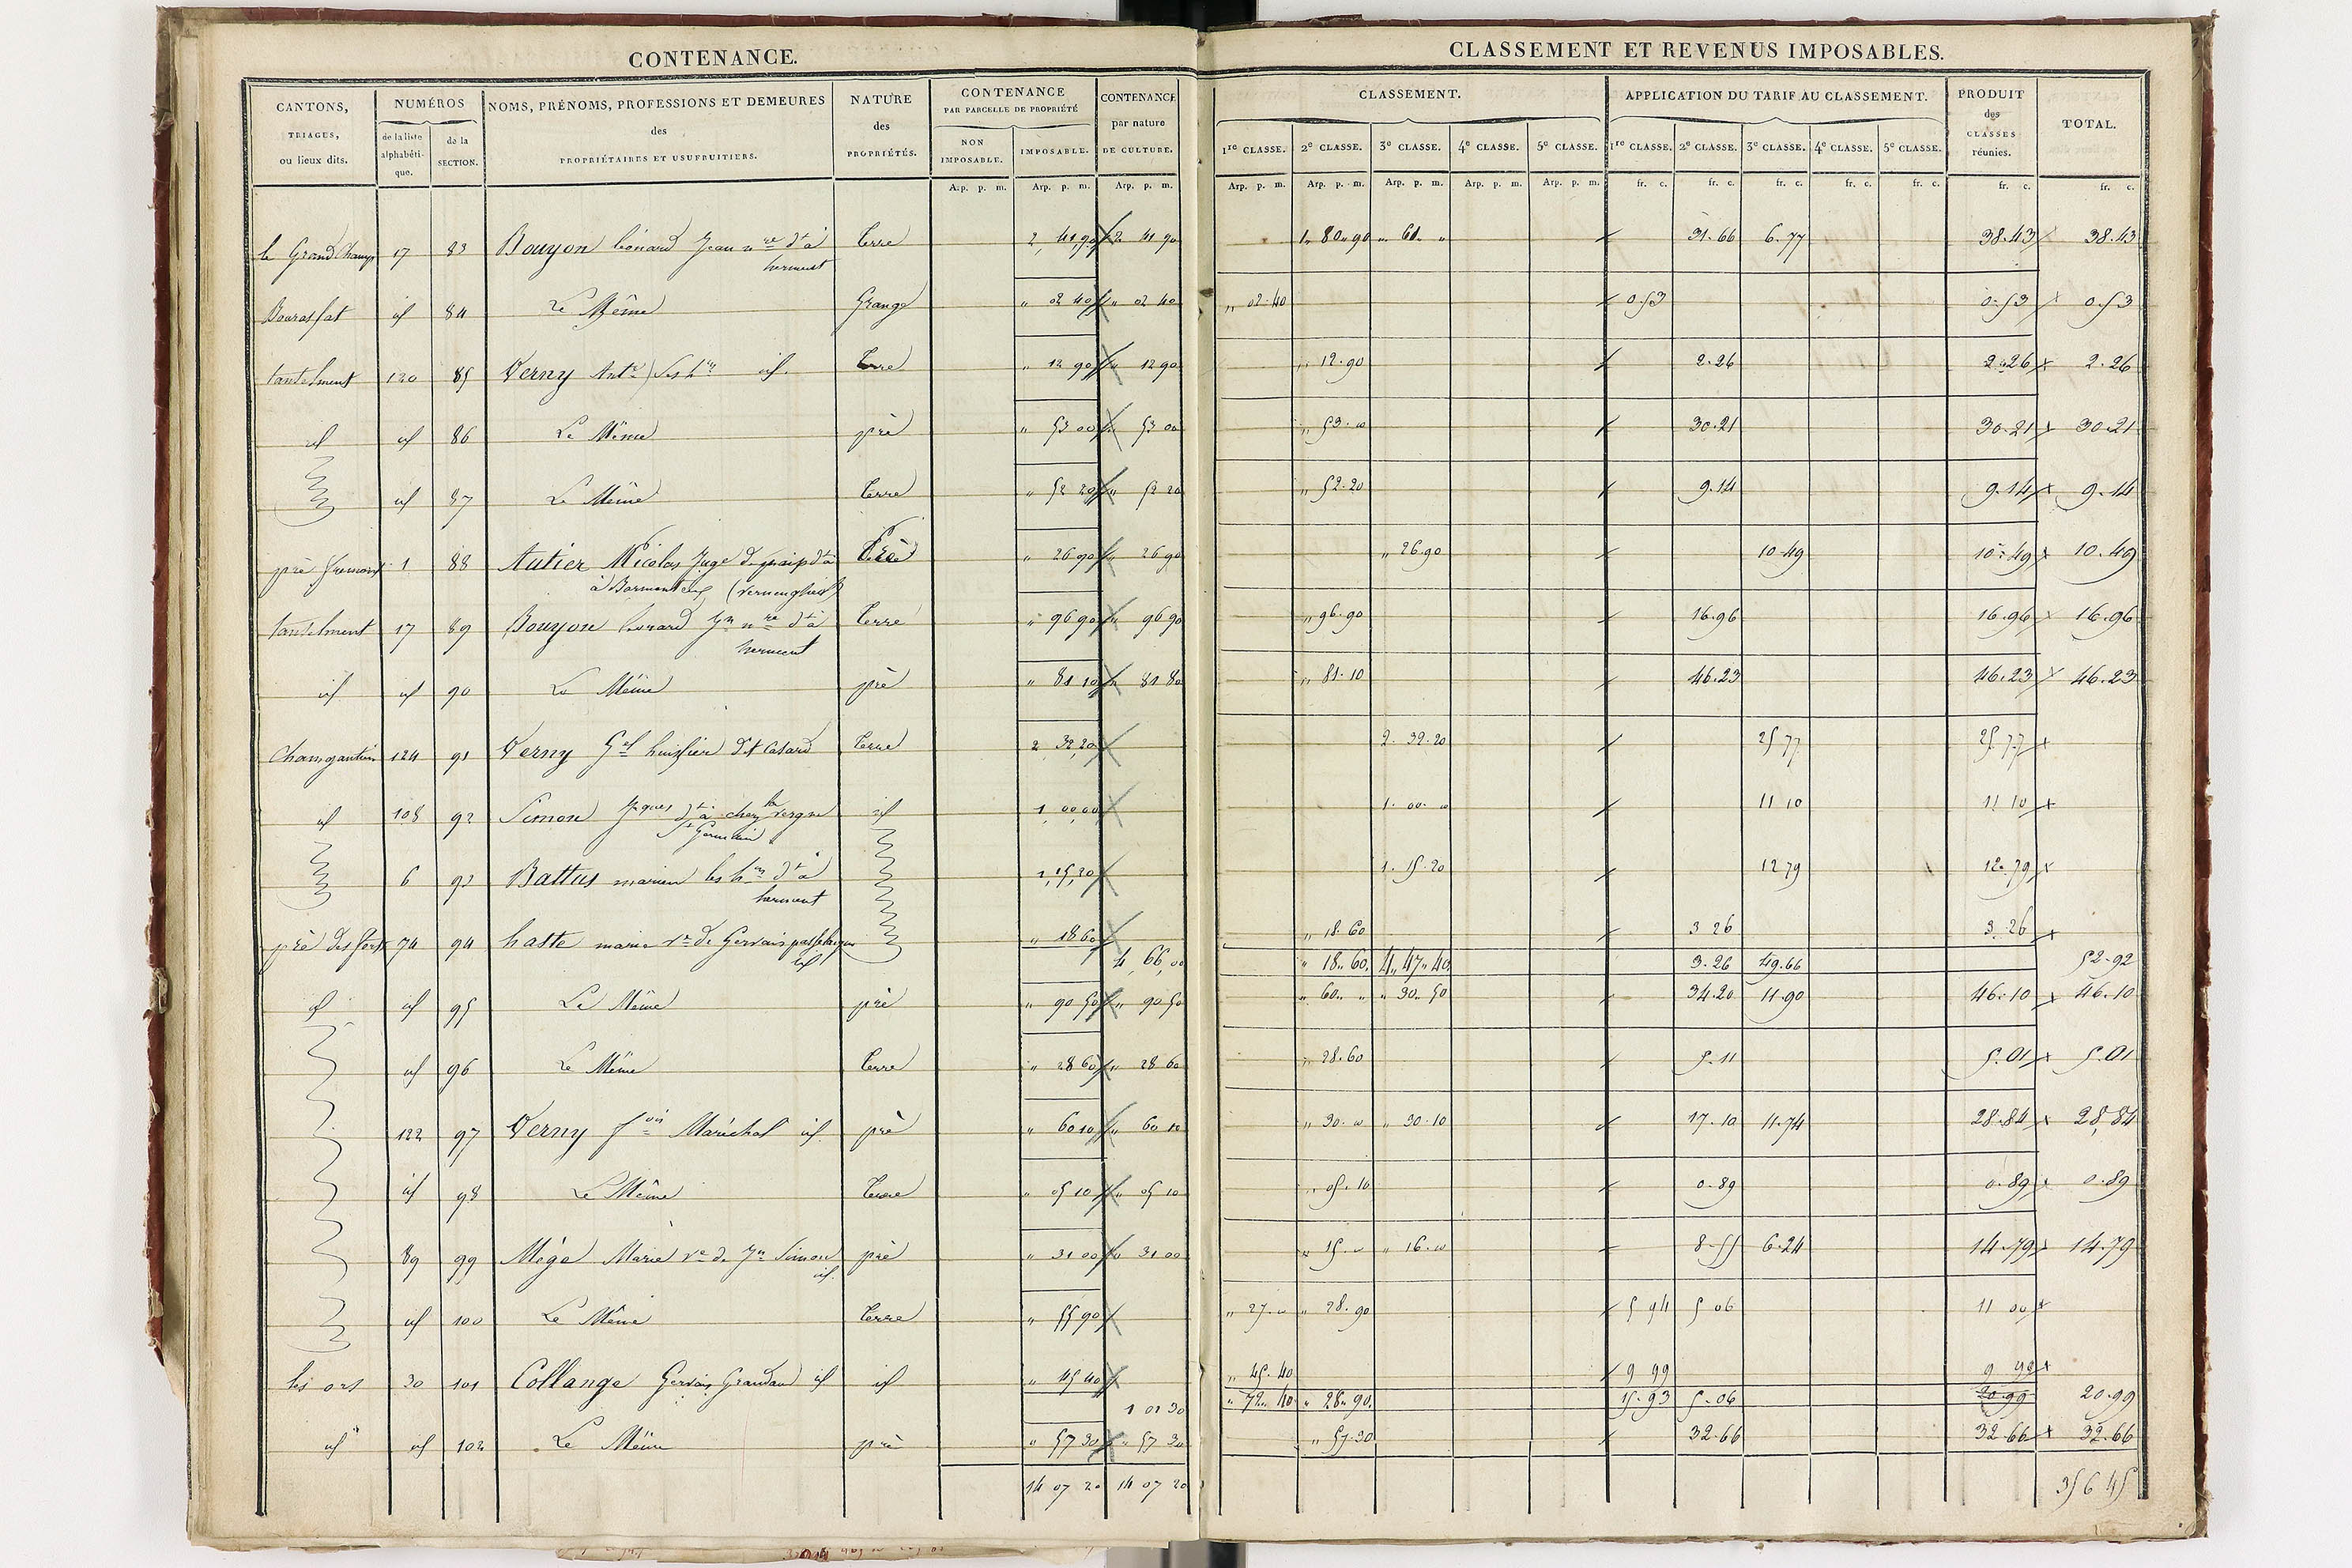 CONTENANCE.
CLASSEMENT ET REVENUS IMPOSABLES.
CANTONS, TRIAGES, ou lieux dits.
NUMÉROS
de la liste alphabétique.
de la SECTION.
NOMS, PRÉNOMS, PROFESSIONS ET DEMEURES
des
PROPRIÉTAIRES ET USUFRUITIERS.
NATURE des PROPRIÉTÉS.
CONTENANCE PAR PARCELLE DE PROPRIÉTÉ
NON IMPOSABLE.
IMPOSABLE.
CONTENANCE par nature DE CULTURE.
CLASSEMENT.
1re CLASSE. 2e CLASSE. 3e CLASSE. 4e CLASSE. 5e CLASSE.
APPLICATION DU TARIF AU CLASSEMENT.
1re CLASSE. 2e CLASSE. 3e CLASSE. 4e CLASSE. 5e CLASSE.
PRODUIT des CLASSES réunies.
TOTAL.
Arp. p. m. Arp. p. m. Arp. p. m. Arp. p. m. Arp. p. m. Arp. p. m. Arp. p. m. Arp. p. m. fr. c. fr. c. fr. c. fr. c. fr. c. fr. c. fr. c.
le Grand Champ 17 83 Bouyon Léonard Jean nre dt à herment Terre 2 41 90 2 41 90 1 80 90 " 61 " 31.66 6.77 38.43 38.43
id 84 Le Même Grange " 02 40 " 02 40 " 02.40 0.53 0.53 0.53
120 85 Verny Ante (les hrs id. Terre " 12 90 " 12 90 " 12.90 2.26 2.26 2.26
id id 86 Le Même pré " 53 00 " 53 00 " 53.00 30.21 30.21 30.21
id 87 Le Même Terre " 52 20 " 52 20 " 52.20 9.14 9.14 9.14
1 88 Autier Nicolas Juge de paix dt à Pré " 26 90 " 26 90 " 26.90 10.49 10.49 10.49
17 89 Bouyon Léonard Jn nre dt à herment Terre " 96 90 " 96 90 " 96.90 16.96 16.96 16.96
id id 90 Le Même pré " 81 10 " 81 80 " 81.10 46.23 46.23 46.23
124 91 Verny huissier Terre 2 32 20 2. 32.20 25 77 25.77
id 108 92 Simon Jques dt à chez la vergne St Germain id 1 00 00 1. 00. 00 11 10 11 10
6 93 Battus marien les hrs dt à herment 1 15 20 1. 15.20 12 79 12.79
74 94 haste marie ve de Gervais id " 18 60 " 18.60 3 26 3.26
4 66 00 " 18 60 4 47 40 3.26 49.66 52.92
id id 95 Le Même pré " 90 50 " 90 50 " 60 " " 30 50 34.20 11.90 46.10 46.10
id 96 Le Même Terre " 28 60 " 28 60 " 28.60 5.11 5.01 5.01
122 97 Verny fois Maréchal id. pré " 60 10 " 60 10 " 30.00 " 30.10 17.10 11.74 28.84 28.84
id 98 Le Même Terre " 05 10 " 05 10 " 05.10 0.89 0.89 0.89
89 99 Mège Marie ve de Jn Simon id. pré " 31 00 " 31 00 " 15.00 " 16.00 8.55 6.24 14.79 14.79
id 100 Le Même Terre " 55 90 " 27.00 " 28.90 5 94 5 06 11 00
les ors 30 101 Collange Gervais id id " 45 40 " 45.40 9 99 9 99
1 01 30 " 72 40 " 28 90 15.93 5.06 20.99 20.99
id id 102 Le Même pré " 57 30 " 57 30 " 57.30 32.66 32.66 32.66
14 07 20 14 07 20 356 45